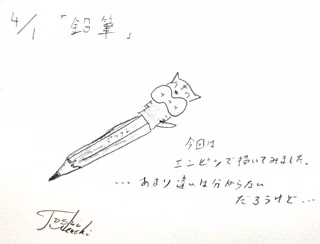 4/1 「鉛筆」
今回は
エンピツで描いてみました。
… あまり違いは分からない
だろうけど …